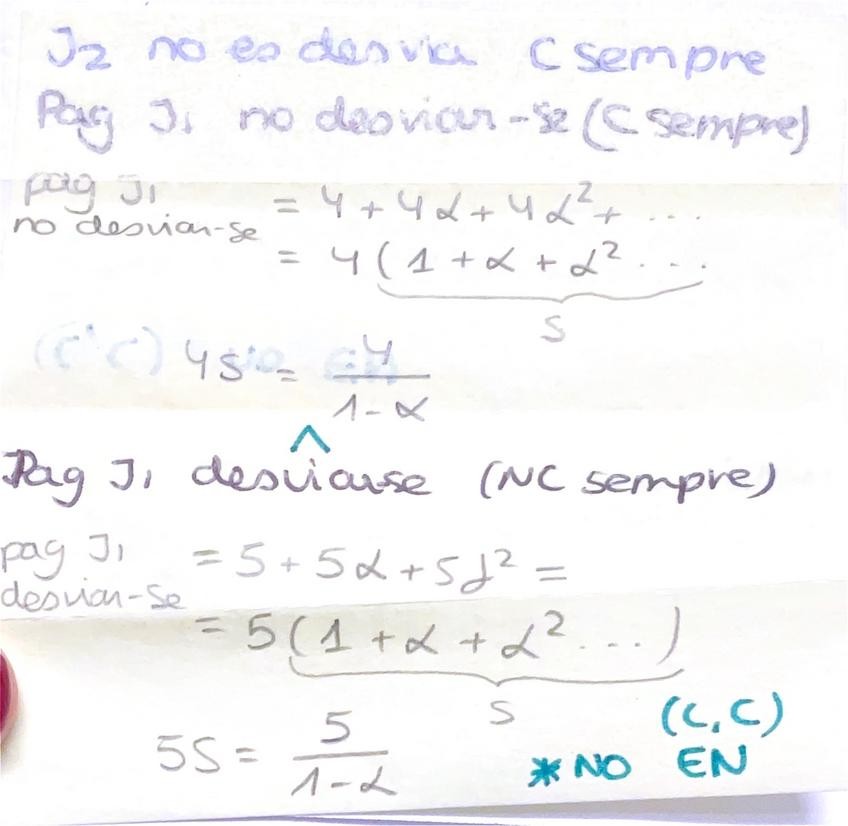 J2 no es desvia C sempre
Pag J1 no desviar-se (C sempre)
pag J1 no desviar-se = 4 + 4α + 4α² + ...
= 4 (1 + α + α² ...
S
4S = 4/(1-α)
^
Pag J1 desviarse (NC sempre)
pag J1 desviar-se = 5 + 5α + 5α² =
= 5 (1 + α + α² ...)
S
5S = 5/(1-α)
(C, C)
* NO EN